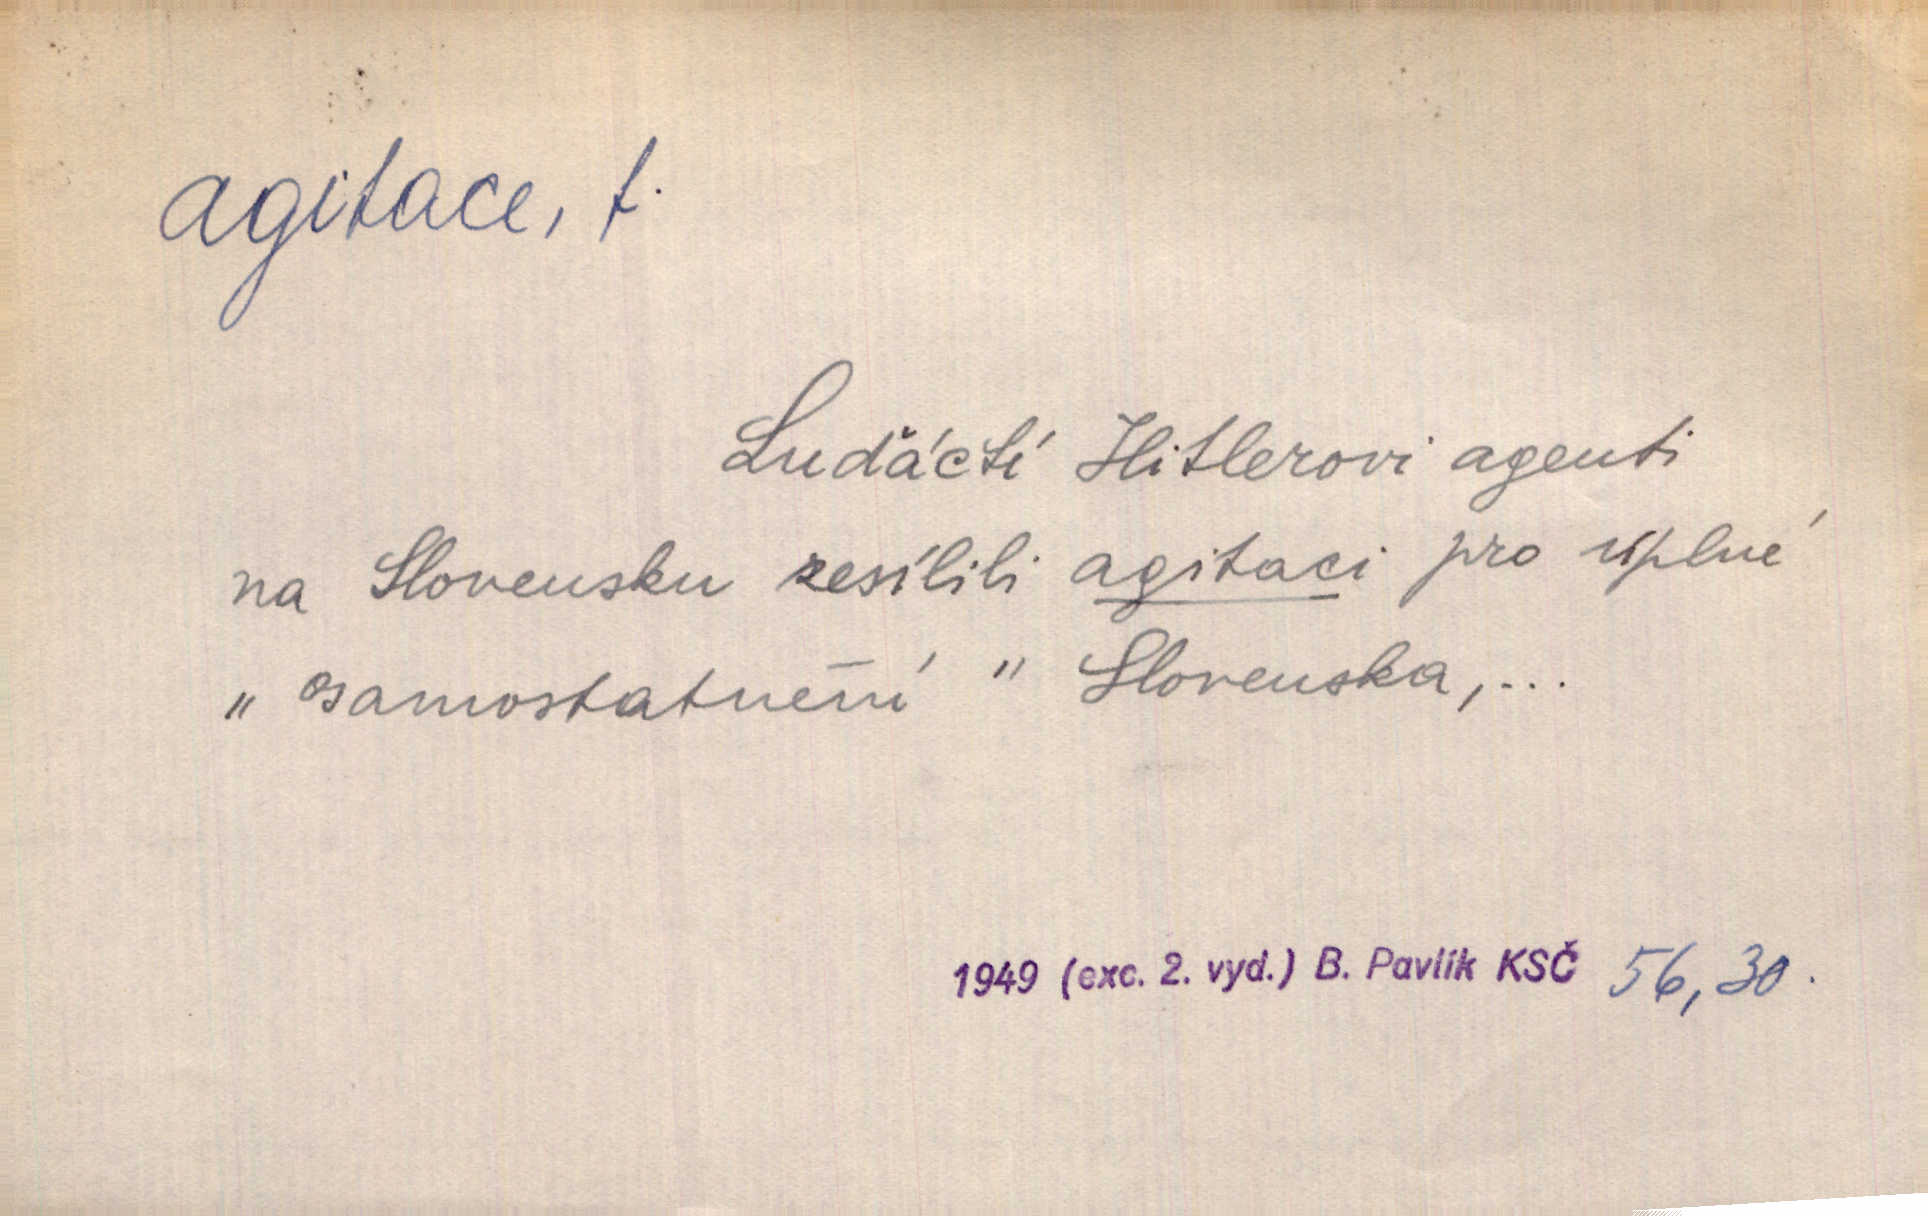 agitace, f.
Luďáčtí Hitlerovi agenti
na Slovensku zesílili agitaci pro úplné
„osamostatnění" Slovenska,...
1949 (exc. 2. vyd.) B. Pavlík KSČ 56,30.